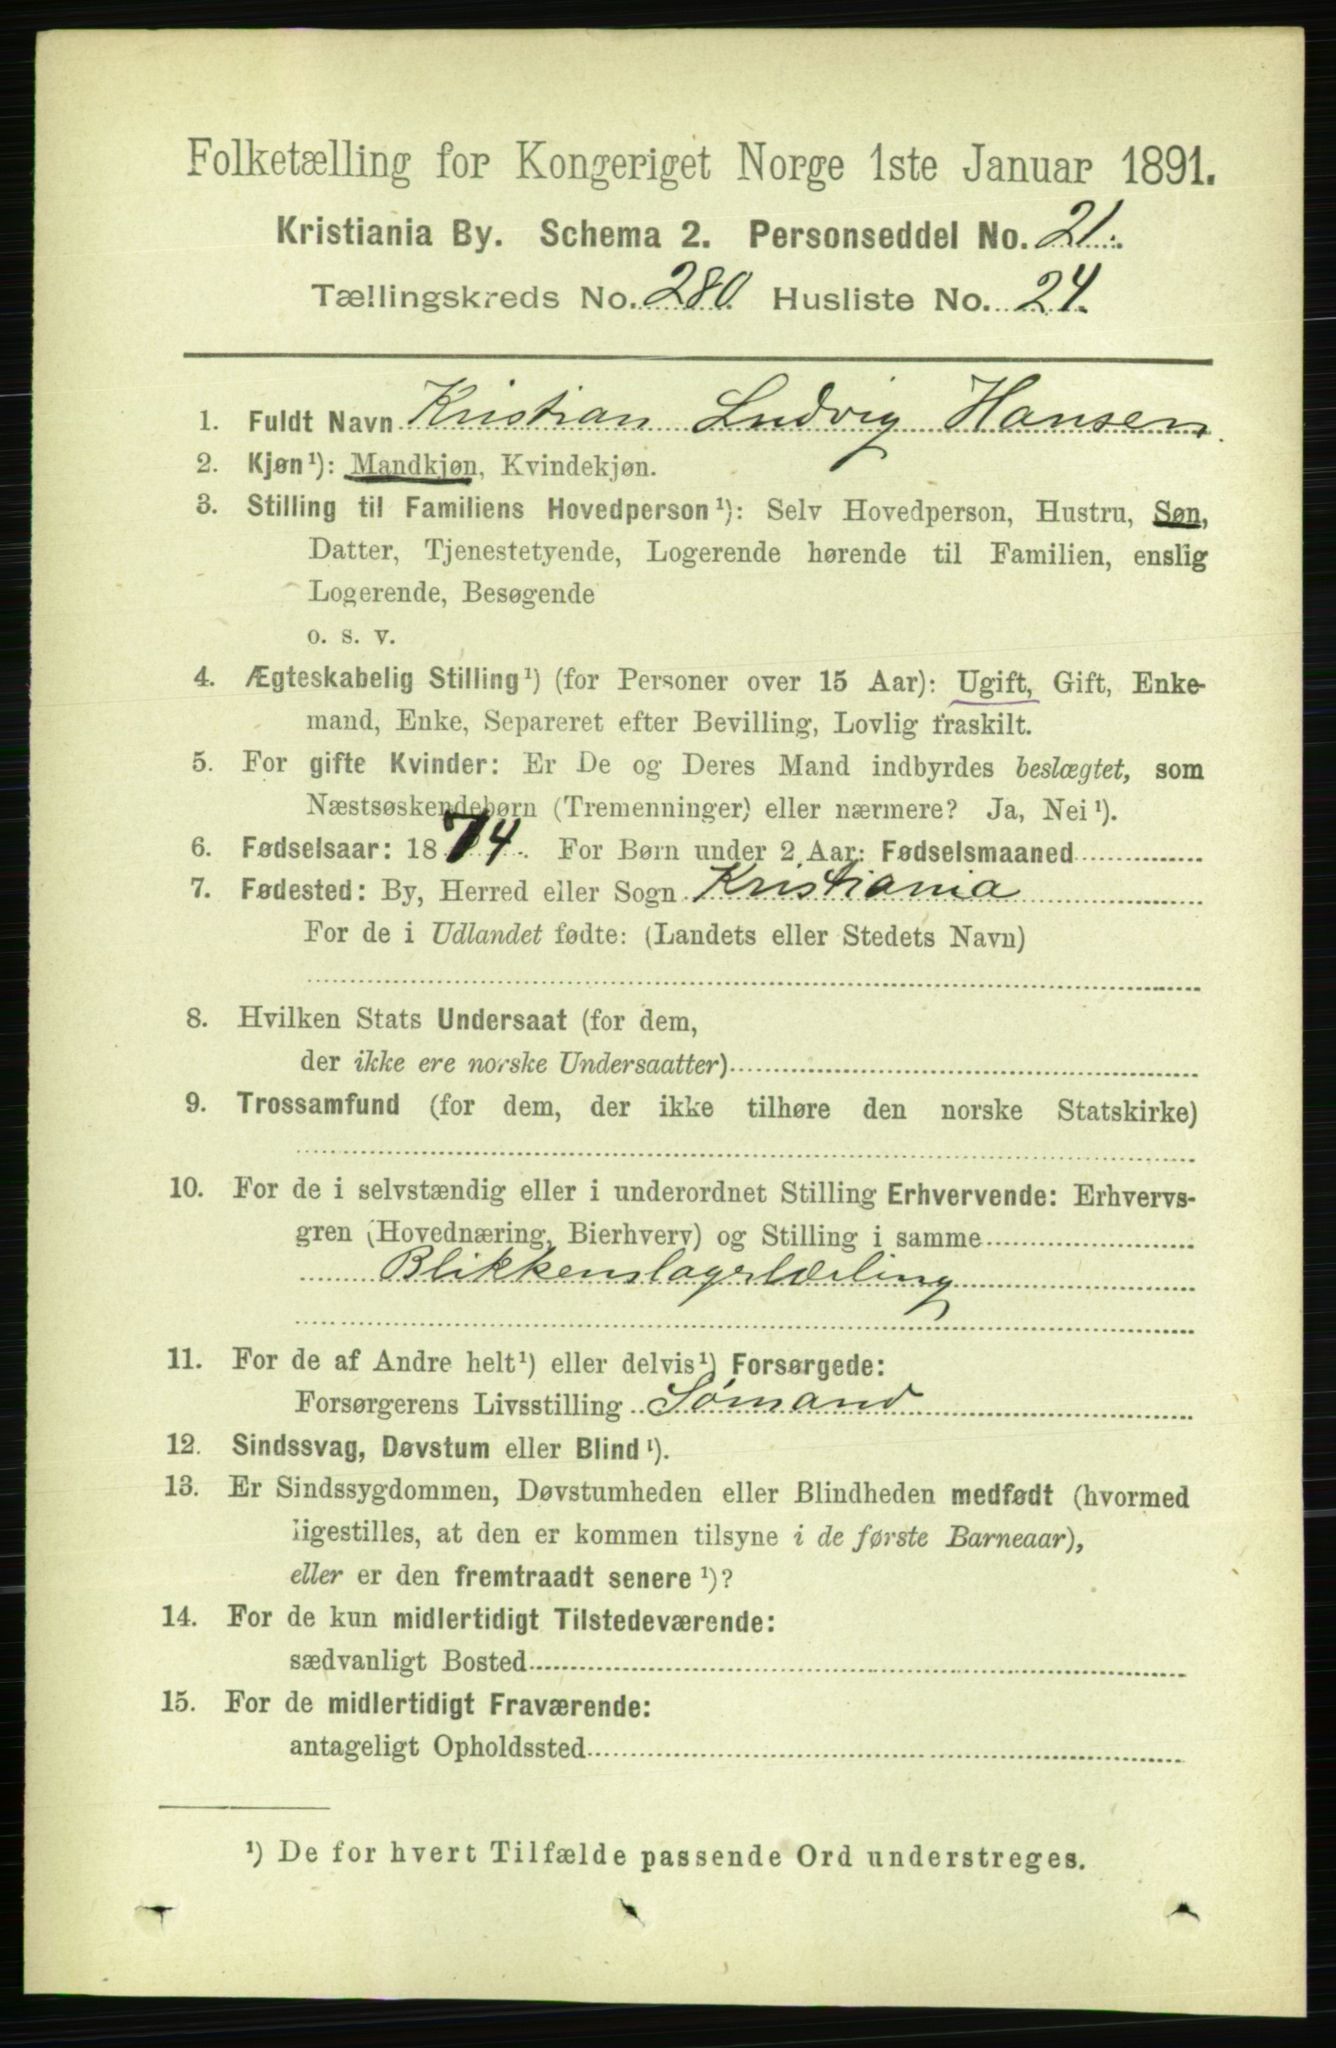 Folketælling for Kongeriget Norge 1ste Januar 1891.
Kristiania By. Schema 2. Personseddel No. 21.
Tællingskreds No. 280 Husliste No. 24.
1. Fuldt Navn Kristian Ludvig Hansen
2. Kjøn¹): Mandkjøn, Kvindekjøn.
3. Stilling til Familiens Hovedperson¹): Selv Hovedperson, Hustru, Søn,
Datter, Tjenestetyende, Logerende hørende til Familien, enslig
Logerende, Besøgende
o. s. v.
4. Ægteskabelig Stilling¹) (for Personer over 15 Aar): Ugift, Gift, Enke-
mand, Enke, Separeret efter Bevilling, Lovlig fraskilt.
5. For gifte Kvinder: Er De og Deres Mand indbyrdes beslægtet, som
Næstsøskendebørn (Tremenninger) eller nærmere? Ja, Nei¹).
6. Fødselsaar: 1874. For Børn under 2 Aar: Fødselsmaaned
7. Fødested: By, Herred eller Sogn Kristiania
For de i Udlandet fødte: (Landets eller Stedets Navn)
8. Hvilken Stats Undersaat (for dem,
der ikke ere norske Undersaatter)
9. Trossamfund (for dem, der ikke tilhøre den norske Statskirke)
10. For de i selvstændig eller i underordnet Stilling Erhvervende: Erhvervs-
gren (Hovednæring, Bierhverv) og Stilling i samme
Blikkenslagerlærling
11. For de af Andre helt¹) eller delvis¹) Forsørgede:
Forsørgerens Livsstilling Sømand
12. Sindssvag, Døvstum eller Blind¹).
13. Er Sindssygdommen, Døvstumheden eller Blindheden medfødt (hvormed
ligestilles, at den er kommen tilsyne i de første Barneaar),
eller er den fremtraadt senere¹)?
14. For de kun midlertidigt Tilstedeværende:
sædvanligt Bosted
15. For de midlertidigt Fraværende:
antageligt Opholdssted
¹) De for hvert Tilfælde passende Ord understreges.